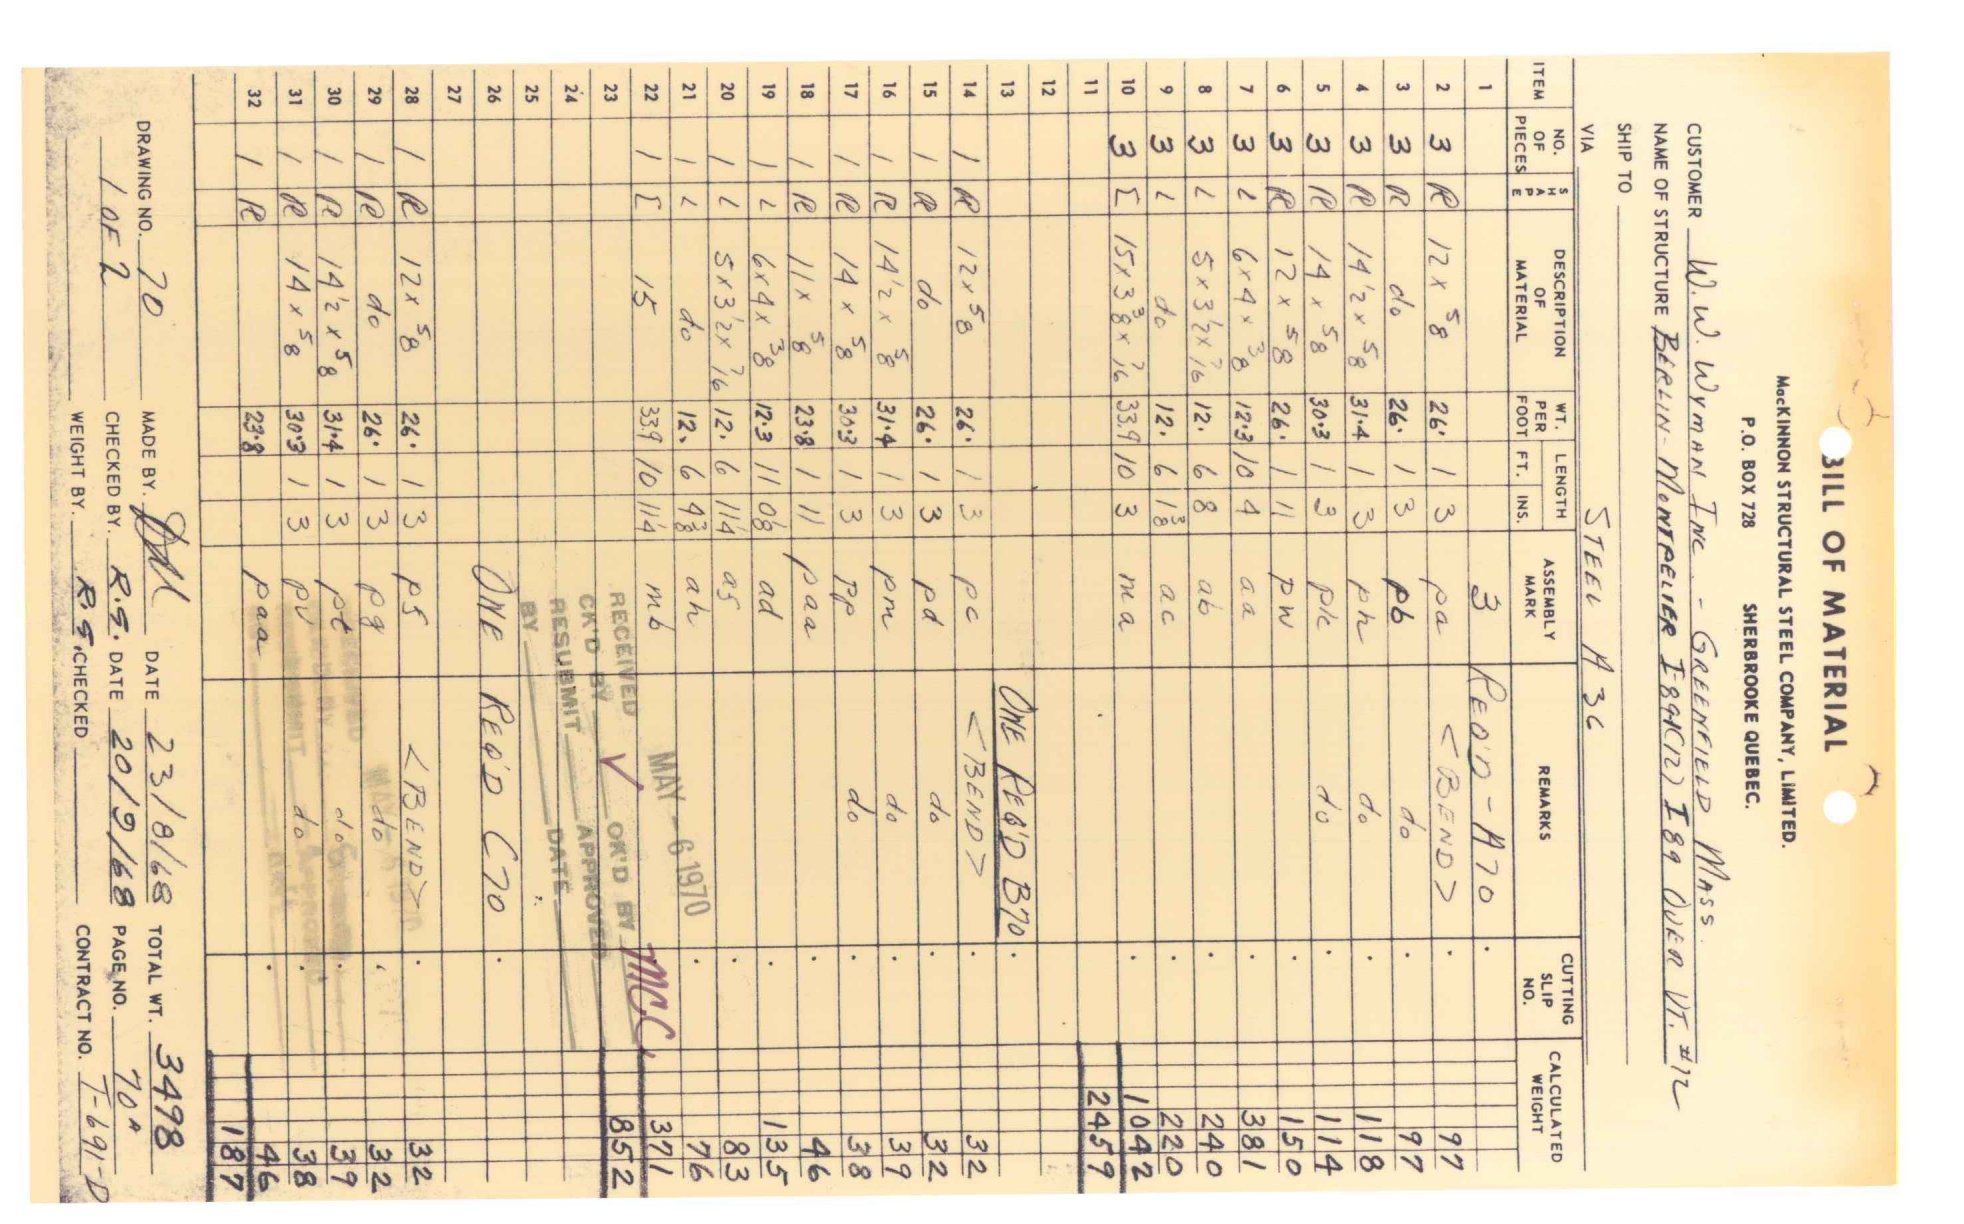 BILL OF MATERIAL
MacKINNON STRUCTURAL STEEL COMPANY, LIMITED.
P.O. BOX 728 SHERBROOKE QUEBEC.
CUSTOMER W. W. WYMAN INC. - GREENFIELD MASS.
NAME OF STRUCTURE BERLIN-MONTPELIER I89-1(12) I 89 OVER VT. #12
SHIP TO
VIA STEEL A 36
ITEM NO. OF PIECES SHAPE DESCRIPTION OF MATERIAL WT. PER FOOT LENGTH FT. INS. ASSEMBLY MARK REMARKS CUTTING SLIP NO. CALCULATED WEIGHT
1 3 REQ'D - A70
2 3 PL 12 x 5/8 26. 1 3 pa <BEND> 97
3 3 PL do 26. 1 3 pb do 97
4 3 PL 14 1/2 x 5/8 31.4 1 3 ph do 118
5 3 PL 14 x 5/8 30.3 1 3 pk do 114
6 3 PL 12 x 5/8 26. 1 11 pw 150
7 3 L 6x4x 3/8 12.3 10 4 aa 381
8 3 L 5x3 1/2x 7/16 12. 6 8 ab 240
9 3 L do 12. 6 1 3/8 ac 220
10 3 [ 15x3 3/8x 7/16 33.9 10 3 ma 1042
11 2459
12
13 ONE REQ'D B70
14 1 PL 12x 5/8 26. 1 3 pc <BEND> 32
15 1 PL do 26. 1 3 pd do 32
16 1 PL 14 1/2 x 5/8 31.4 1 3 pm do 39
17 1 PL 14 x 5/8 30.3 1 3 pp do 38
18 1 PL 11 x 5/8 23.8 1 11 paa 46
19 1 L 6x4x 3/8 12.3 11 0 1/8 ad 135
20 1 L 5x3 1/2x 7/16 12. 6 11 1/4 as 83
21 1 L do 12. 6 4 3/8 ah 76
22 1 [ 15 33.9 10 11 1/4 mb 371
23 852
24
25
26 ONE REQ'D C70
27
28 1 PL 12x 5/8 26. 1 3 ps <BEND> 32
29 1 PL do 26. 1 3 pg do 32
30 1 PL 14 1/2 x 5/8 31.4 1 3 pt do 39
31 1 PL 14 x 5/8 30.3 1 3 pv do 38
32 1 PL 23.8 paa 46
187
MAY - 6 1970
RECEIVED
CK'D BY OK'D BY MCC
RESUBMIT APPROVED
BY DATE
DRAWING NO. 70 MADE BY. DATE 23/8/68 TOTAL WT. 3498
1 OF 2 CHECKED BY. R.S. DATE 20/9/68 PAGE NO. 70A
WEIGHT BY. R.S. CHECKED CONTRACT NO. T-691-D